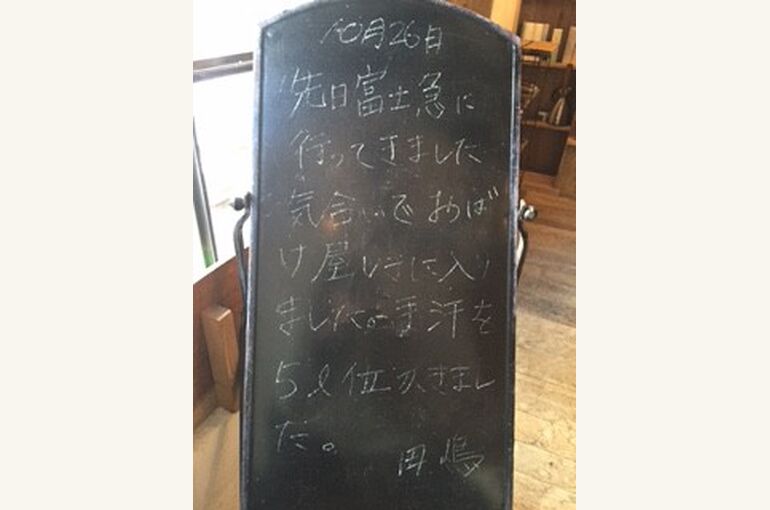 10月26日
先日富士急に
行ってきました
気合いでおば
け屋しきに入り
ました。手汗を
5ℓ位かきまし
た。
田嶋